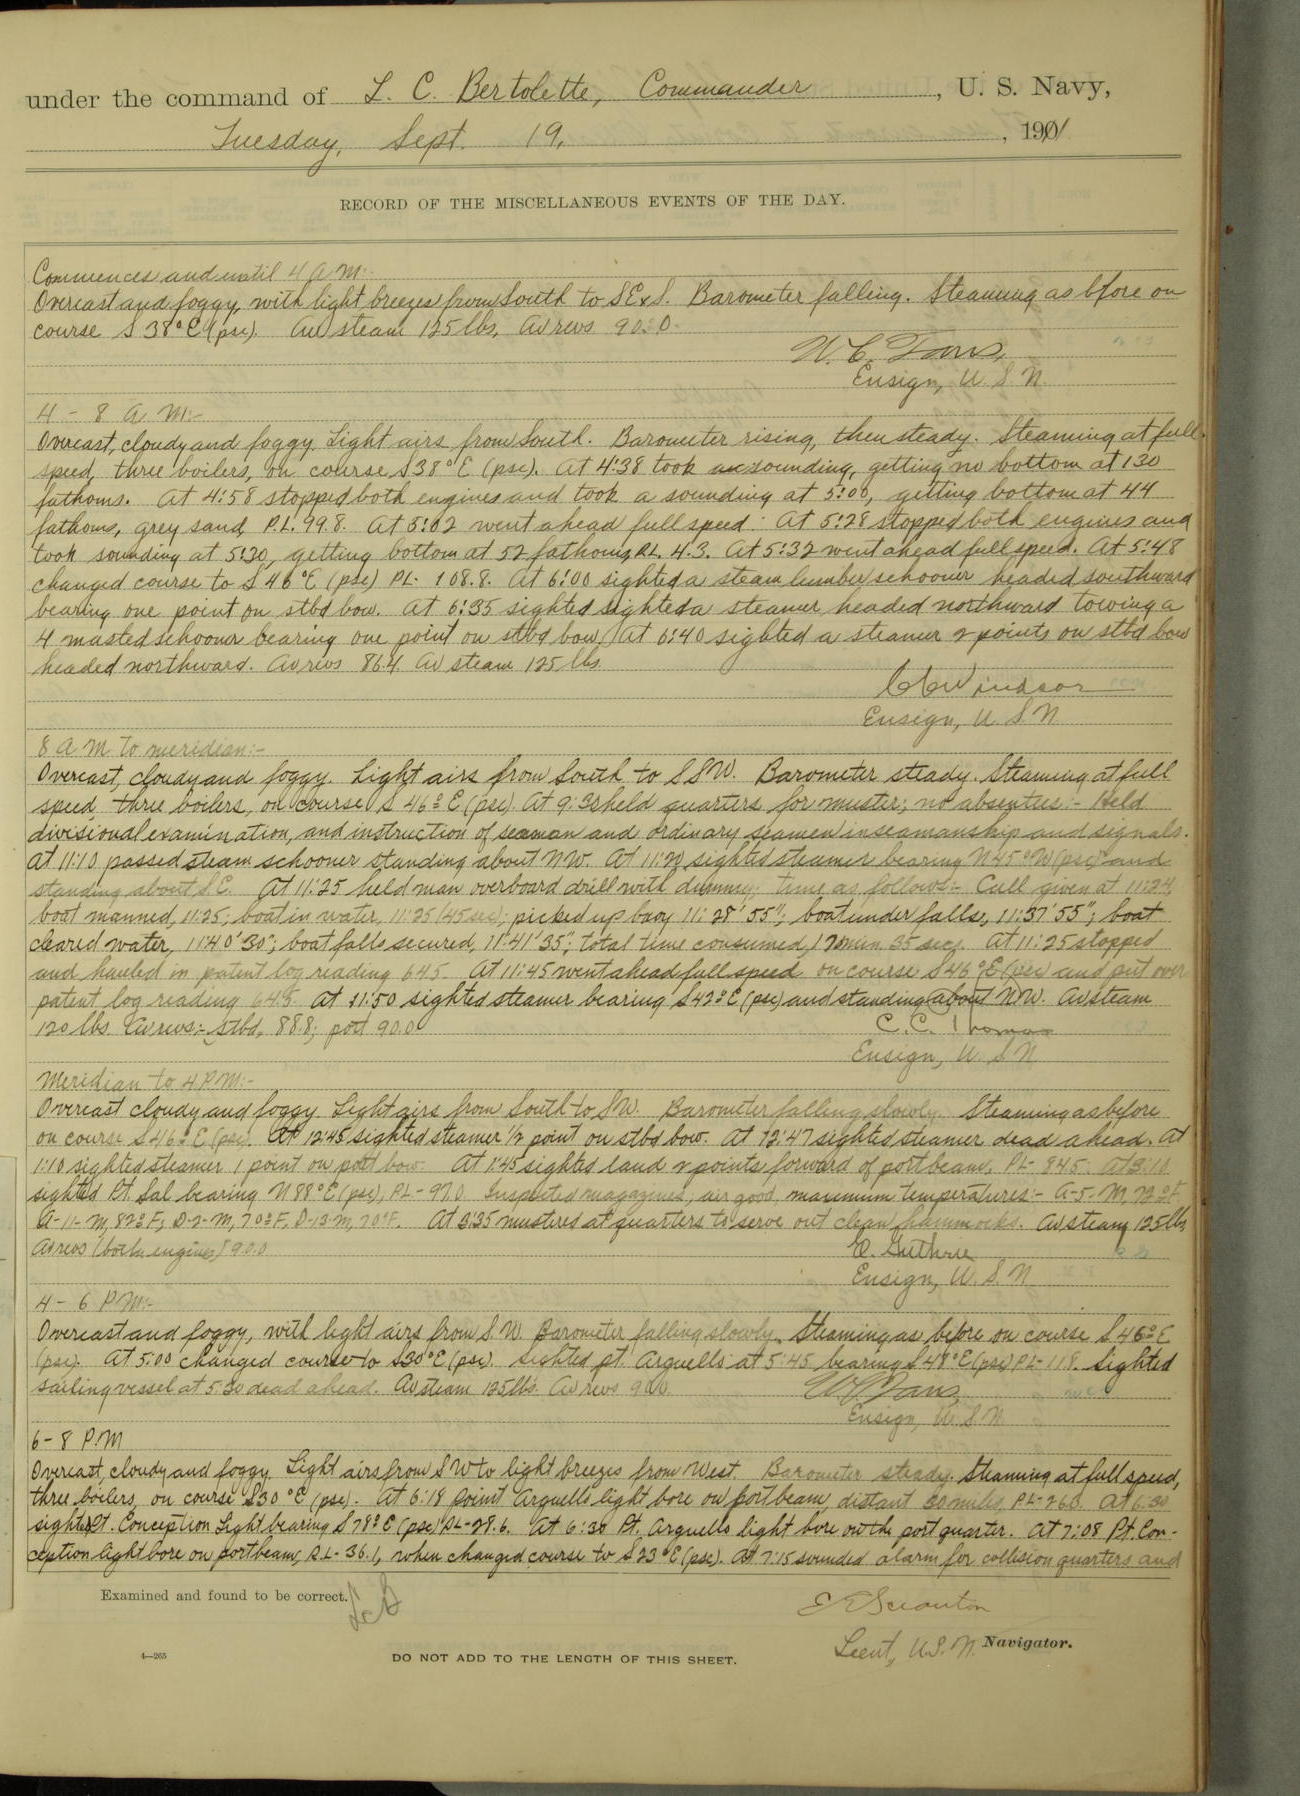 under the command of L. C. Bertolette, Commander, U. S. Navy,
Tuesday, Sept. 19, 191
RECORD OF THE MISCELLANEOUS EVENTS OF THE DAY.
Commences and until 4 A.M:-
Overcast and foggy, with light breezes from South to SExS. Barometer falling. Steaming as bfore on
course S 38° E (psc). Av steam 125 lbs, Av revs 90.0.
W. C.
Ensign, U. S. N.
4 - 8 A. M:-
Overcast, cloudy and foggy. Light airs from South. Barometer rising, then steady. Steaming at full
speed, three boilers, on course S38°E (psc). At 4:38 took sounding, getting no bottom at 130
fathoms. At 4:58 stopped both engines and took a sounding at 5:00, getting bottom at 44
fathoms, grey sand, P.L. 99.8. At 5:02 went ahead full speed. At 5:28 stopped both engines and
took sounding at 5:30, getting bottom at 52 fathoms, P.L. 4.3. At 5:32 went ahead full speed. At 5:48
changed course to S 46°E (psc) PL- 108.8. At 6:00 sighted a steam lumber schooner headed southward
bearing one point on stbd bow. At 6:35 sighted sighted a steamer headed northward towing a
4 masted schooner bearing one point on stbd bow. At 6:40 sighted a steamer 2 points on stbd bow
headed northward. Av revs 86.4. Av steam 125 lbs.
CC Windsor
Ensign, U. S. N
8 A M to meridian:-
Overcast, cloudy and foggy. Light airs from South to SSW. Barometer steady. Steaming at full
speed, three boilers, on course S 46° E (psc). At 9:30 held quarters for muster; no absentees.- Held
divisional examination, and instruction of seaman and ordinary seamen in seamanship and signals.
At 11:10 passed steam schooner standing about NW. At 11:20 sighted steamer bearing N45°W (psc) and
standing about S.E. At 11:25 held man overboard drill with dummy; time as follows:- Call given at 11:24,
boat manned, 11:25; boat in water, 11:25 (45 sec); picked up buoy 11:28'55"; boat under falls, 11:37'55"; boat
cleared water, 11:40'30"; boat falls secured, 11:41'35"; total time consumed, min. 35 secs. At 11:25 stopped
and hauled in patent log reading 64.5. At 11:45 went ahead full speed on course S46°E (psc) and put over
patent log reading 64.5. At 11:50 sighted steamer bearing S42°E (psc) and standing about NW. Av steam
120 lbs. Av revs:- Stbd, 88.8; port 90.0
C. C. Thomas
Ensign, U. S. N
Meridian to 4 P.M:-
Overcast cloudy and foggy. Light airs from South to SW. Barometer falling slowly. Steaming as before
on course S46°E (psc). At 12:45 sighted steamer 1/2 point on stbd bow. At 12:47 sighted steamer dead ahead. At
1:10 sighted steamer 1 point on port bow. At 1:45 sighted land 2 points forward of port beam, PL- 84.5. At 3:10
sighted Pt. Sal bearing N 88°E (psc), PL- 97.0. Inspected magazines, air good, maximum temperatures:- A-5-M, 72°F,
A-11-M, 82°F; D-2-M, 70°F, D-13-M, 70°F. At 3:35 mustered at quarters to serve out clean hammocks. Av steam 125 lbs
Av revs (both engines) 90.0
E. Guthrie
Ensign, U. S. N
4 - 6 P M:-
Overcast and foggy, with light airs from S.W. Barometer falling slowly. Steaming as before on course S 46° E
(psc). At 5:00 changed course to S30°E (psc). Sighted pt. Arguello at 5:45 bearing S48°E (psc) PL- 11.8. Sighted
sailing vessel at 5:30 dead ahead. Av steam 125 lbs. Av revs 90.0.
Ensign, U. S. N.
6 - 8 P.M
Overcast, cloudy and foggy. Light airs from SW to light breezes from West. Barometer steady. Steaming at full speed,
three boilers, on course S30°E (psc). At 6:18 Point Arguello light bore on port beam, distant miles, PL- 26.0. At 6:30
sighted Pt. Conception Light bearing S 78° E (psc) PL- 28.6. At 6:30 Pt. Arguello light bore on the port quarter. At 7:08 Pt. Con-
ception light bore on port beam, P.L- 36.1, when changed course to S 23°E (psc). At 7:15 sounded alarm for collision quarters and
Examined and found to be correct. LCB
E Scranton
Lieut, U.S.N. Navigator.
4—265
DO NOT ADD TO THE LENGTH OF THIS SHEET.